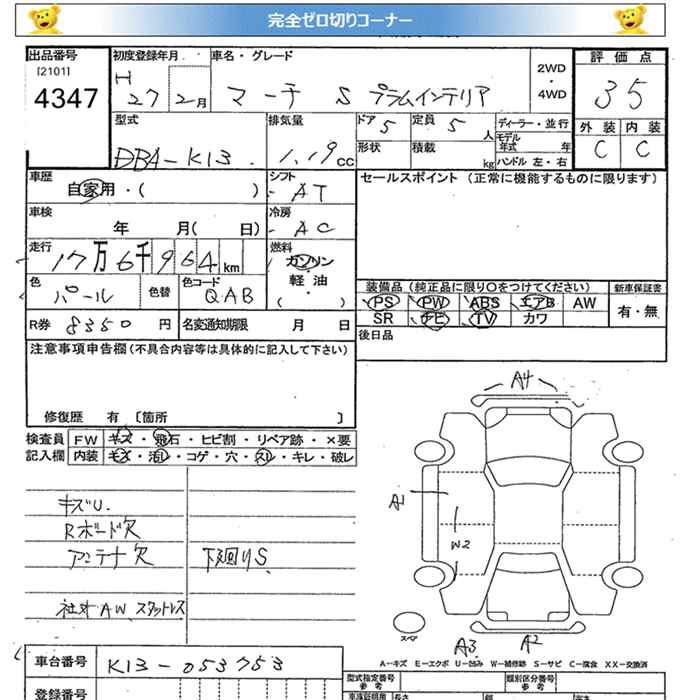 完全ゼロ切りコーナー
出品番号 初度登録年月 車名・グレード 2WD ・ 4WD 評価点
[2101]
4347 H 27 2月 マーチ S プラムインテリア 35
外装 内装
C C
型式 排気量 ドア 5 定員 5人 ディーラー・並行
DBA-K13 1.19 CC 形状 積載 kg モデル年式 年
ハンドル 左・右
車歴 シフト セールスポイント (正常に機能するものに限ります)
自家用・( ) AT
車検 冷房
年 月( 日) AC
走行 燃料
17万6千964km ガソリン・軽油・( )
色 色替 色コード 装備品 (純正品に限り○をつけてください) 新車保証書
パール QAB PS PW ABS エアB AW 有・無
R券 8350円 名変通知期限 月 日 SR ナビ TV カワ
後日品
注意事項申告欄(不具合内容等は具体的に記入して下さい)
修復歴 有〔箇所 〕
検査員 FW キズ・飛石・ヒビ割・リペア跡・×要
記入欄 内装 キズ・汚レ・コゲ・穴・スレ・キレ・破レ
キズU.
Rボード欠
アンテナ欠 下廻りS
社外AW、スタットレス
A4
A1
W2
スペア
A3 A2
A-キズ E-エクボ U-凹み W-補修跡 S-サビ C-腐食 XX-交換済
車台番号 K13-053753
登録番号
型式指定番号 参考 類別区分番号 参考